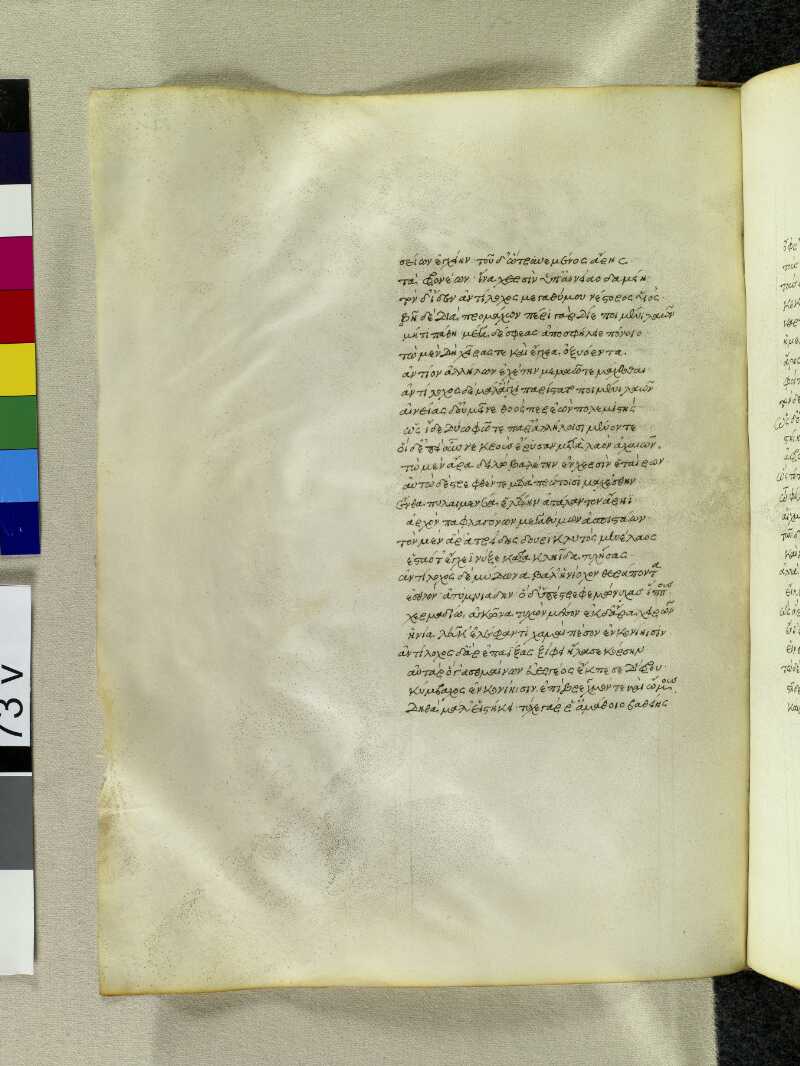 σείων ἐγχείην· τοῦ δ' ὤτρυνεν μένος ἄρης.
τὰ φρονέων· ἵνα χερσὶν ὑπ' αἰνείαο δαμείη·
τὸν δ' ἴδεν ἀντίλοχος μεγαθύμου νέστορος υἱός·
βῆ δὲ διὰ προμάχων· περὶ γὰρ δίε ποιμένι λαῶν
μήτι πάθη· μέγα δέ σφεας ἀποσφήλειε πόνοιο·
τὼ μὲν δὴ χεῖράς τε καὶ ἔγχεα ὀξυόεντα·
ἀντίον ἀλλήλων ἐχέτην μεμαῶτε μάχεσθαι
ἀντίλοχος δὲ μάλ' ἄγχι παρίστατο ποιμένι λαῶν
αἰνείας δ' οὐ μεῖνε θοός περ ἐὼν πολεμιστής
ὡς ἴδε δύω φῶτε παρ' ἀλλήλοισι μένοντε
οἱ δ' ἐπεὶ οὖν νεκροὺς ἔρυσαν μετὰ λαὸν ἀχαιῶν·
τὼ μὲν ἄρα δειλὼ βαλέτην ἐν χερσὶν ἑταίρων
αὐτὼ δὲ στρεφθέντε μετὰ πρώτοισι μαχέσθην
ἔνθα πυλαιμένεα ἑλέτην ἀτάλαντον ἄρηι
ἀρχὸν παφλαγόνων μεγαθύμων ἀσπιστάων·
τὸν μὲν ἄρ' ἀτρείδης δουρὶ κλυτὸς μενέλαος
ἑσταότ' ἔγχεϊ νύξε κατὰ κληῖδα τυχήσας·
ἀντίλοχος δὲ μύδωνα βάλ' ἡνίοχον θεράποντα
ἐσθλὸν ἀτυμνιάδην· ὁ δ' ὑπέστρεφε μώνυχας ἵππους
χερμαδίω· ἀγκῶνα τυχὼν μέσον· ἐκ δ' ἄρα χειρῶν
ἡνία λεύκ' ἐλέφαντι χαμαὶ πέσον ἐν κονίηισιν
ἀντίλοχος δ' ἄρ' ἐπαΐξας ξίφει ἤλασε κόρσην
αὐτὰρ ὅ γ' ἀσθμαίνων εὐεργέος ἔκπεσε δίφρου
κύμβαχος ἐν κονίηισιν ἐπὶ βρεχμόν τε καὶ ὤμους.
δηθὰ μάλ' εἱστήκει· τύχε γάρ ῥ' ἀμάθοιο βαθείης
73 v